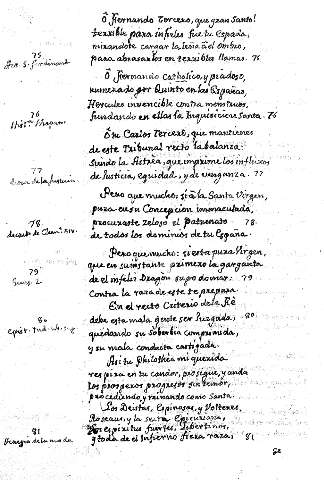 Ô Hernando Tercero, que gran Santo!
terrible para infieles fue tu España,
mirandote cargar la leña al ombro,
para abrasarlos en terribles llamas. 76
75
Ô Hernando Catholico, y piadoso,
numerado por Quinto en las Españas,
Hercules invencible contra monstruos,
fundando en ellas la Inquisicion Santa. 76
76
Ô tu Carlos Tercero, que mantienes
de este Tribunal recto la balanza:
siendo la Astrea, que imprime los influxos
de Justicia, equidad, y de venganza. 77
77
Pero que mucho, si á la Santa Virgen,
pura en su Concepcion immaculada,
procuraste zeloso el patronato 78
de todos los dominios de tu España.
78
Pero que mucho: si esta pura Virgen,
que en su instante primero la garganta
de el infeliz Dragon supo domar, 79
Contra la raza de este te prepara
79
En el recto Criterio de la Fè
debe esta mala gente ser Juzgada, 80
quedando su soberbia comprimida,
y su mala conducta castigada.
80
Asi tu Philothea mi querida
respira en tu candor, prosigue, y anda
los prosperos progresos sin temor,
procediendo, y reinando como Santa.
Los Deistas, Espinosas, y Volteres,
Roseaus, y la secta Epicuriana,
los espiritus fuertes, Libertinos,
y toda de el Infierno fiera raza; 81
81